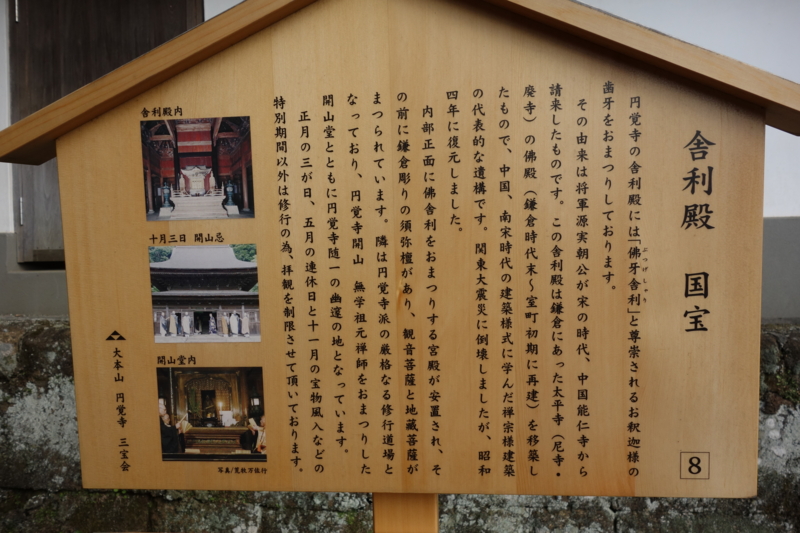 舎利殿　国宝
円覚寺の舎利殿には「佛牙舎利」と尊崇されるお釈迦様の
ぶつげしゃり
歯牙をおまつりしております。
その由来は将軍源実朝公が宋の時代、中国能仁寺から
請来したものです。この舎利殿は鎌倉にあった太平寺（尼寺・
廃寺）の佛殿（鎌倉時代末～室町初期に再建）を移築し
たもので、中国、南宋時代の建築様式に学んだ禅宗様建築
の代表的な遺構です。関東大震災に倒壊しましたが、昭和
四年に復元しました。
内部正面に佛舎利をおまつりする宮殿が安置され、そ
の前に鎌倉彫りの須弥壇があり、観音菩薩と地蔵菩薩が
まつられています。隣は円覚寺派の厳格なる修行道場と
なっており、円覚寺開山　無学祖元禅師をおまつりした
開山堂とともに円覚寺随一の幽邃の地となっています。
正月の三が日、五月の連休日と十一月の宝物風入などの
特別期間以外は修行の為、拝観を制限させて頂いております。
舎利殿内
十月三日　開山忌
開山堂内
大本山　円覚寺　三宝会
8